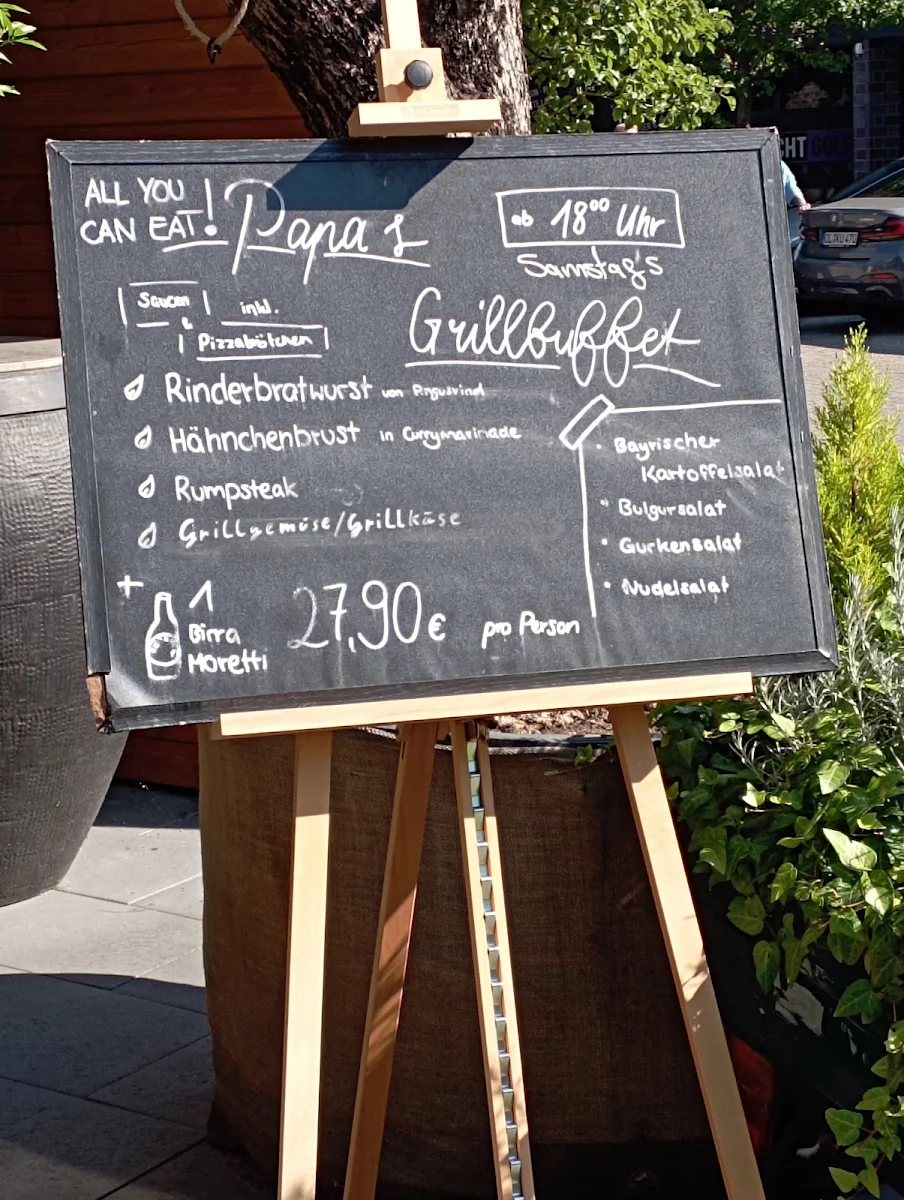 ALL YOU
CAN EAT!
Papa's
ab 18⁰⁰ Uhr
Samstag's
Grillbuffet
Saucen inkl.
&
Pizzabrötchen
Rinderbratwurst von Angusrind
Hähnchenbrust in Currymarinade
Rumpsteak
Grillgemüse/Grillkäse
Bayrischer
Kartoffelsalat
Bulgursalat
Gurkensalat
Nudelsalat
+ 1
Birra
Moretti
27,90€ pro Person